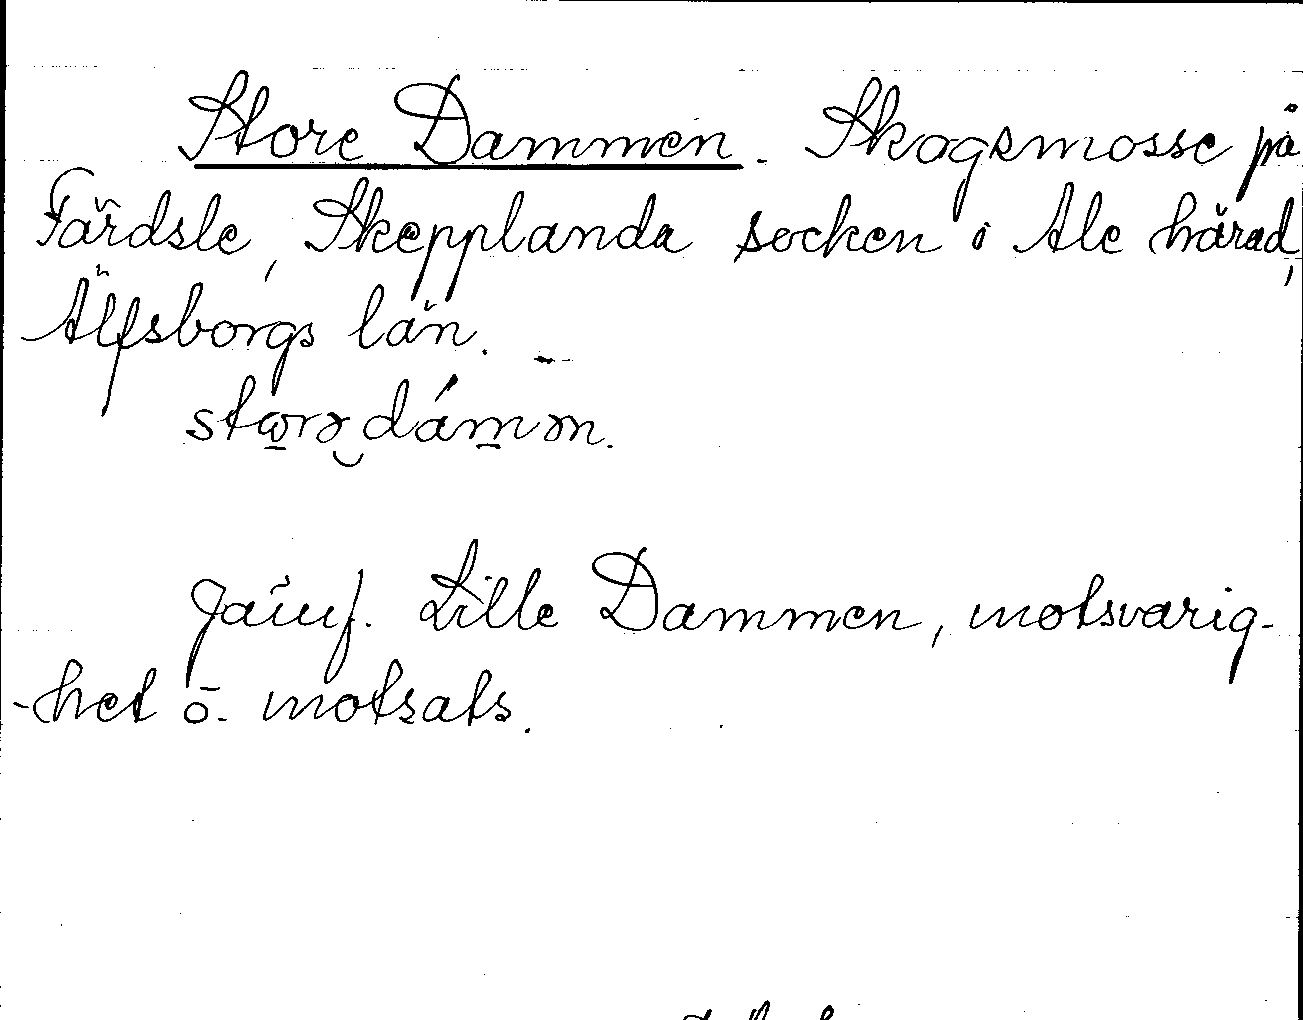 Store Dammen. Skogsmosse på
Färdsle, Skepplanda socken i Ale härad,
Älfsborgs län. -
stωrə‿dám̠ən.
Jämf. Lille Dammen, motsvarig-
-het o. motsats.